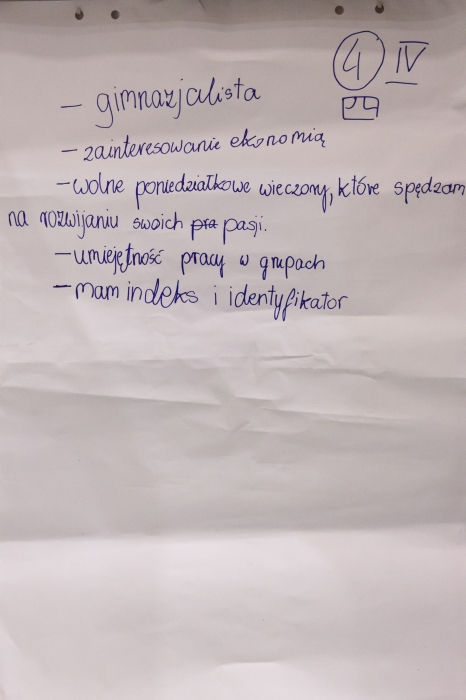 4 IV
- gimnazjalista
- zainteresowanie ekonomią
- wolne poniedziałkowe wieczory, które spędzam
na rozwijaniu swoich pra pasji.
- umiejętność pracy w grupach
- mam indeks i identyfikator